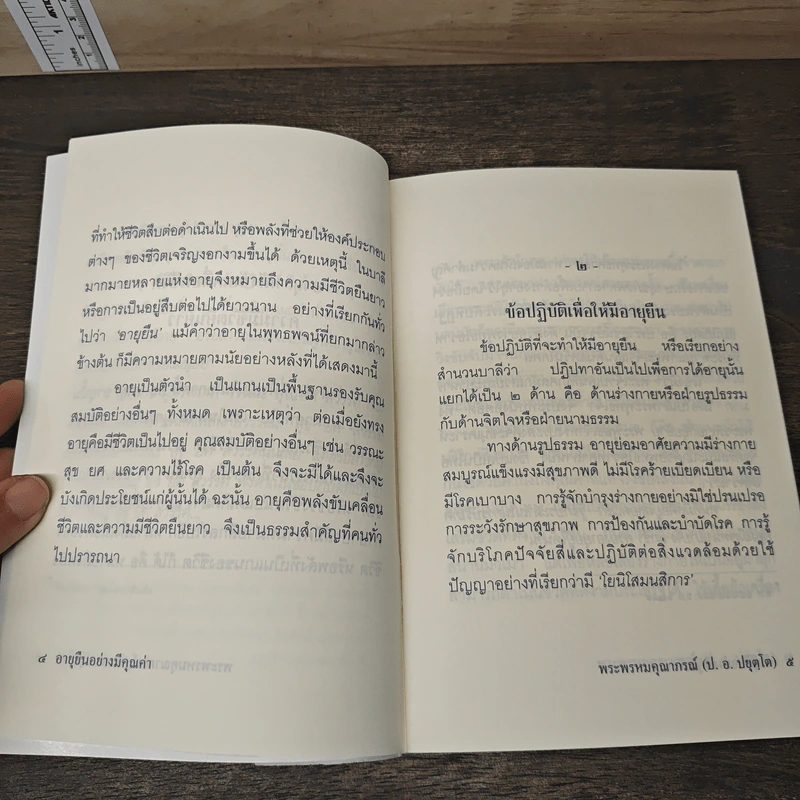 ที่ทำให้ชีวิตสืบต่อดำเนินไป หรือพลังที่ช่วยให้องค์ประกอบ
ต่างๆ ของชีวิตเจริญงอกงามขึ้นได้ ด้วยเหตุนี้ ในบาลี
มากมายหลายแห่งอายุจึงหมายถึงความมีชีวิตยืนยาว
หรือการเป็นอยู่สืบต่อไปได้ยาวนาน อย่างที่เรียกกันทั่ว
ไปว่า 'อายุยืน' แม้คำว่าอายุในพุทธพจน์ที่ยกมากล่าว
ข้างต้น ก็มีความหมายตามนัยอย่างหลังที่ได้แสดงมานี้
อายุเป็นตัวนำ เป็นแกนเป็นพื้นฐานรองรับคุณ
สมบัติอย่างอื่นๆ ทั้งหมด เพราะเหตุว่า ต่อเมื่อยังทรง
อายุคือมีชีวิตเป็นไปอยู่ คุณสมบัติอย่างอื่นๆ เช่น วรรณะ
สุข ยศ และความไร้โรค เป็นต้น จึงจะมีได้และจึงจะ
บังเกิดประโยชน์แก่ผู้นั้นได้ ฉะนั้น อายุคือพลังขับเคลื่อน
ชีวิตและความมีชีวิตยืนยาว จึงเป็นธรรมสำคัญที่คนทั่ว
ไปปรารถนา
๔ อายุยืนอย่างมีคุณค่า
- ๒ -
ข้อปฏิบัติเพื่อให้มีอายุยืน
ข้อปฏิบัติที่จะทำให้มีอายุยืน หรือเรียกอย่าง
สำนวนบาลีว่า ปฏิปทาอันเป็นไปเพื่อการได้อายุนั้น
แยกได้เป็น ๒ ด้าน คือ ด้านร่างกายหรือฝ่ายรูปธรรม
กับด้านจิตใจหรือฝ่ายนามธรรม
ทางด้านรูปธรรม อายุย่อมอาศัยความมีร่างกาย
สมบูรณ์แข็งแรงมีสุขภาพดี ไม่มีโรคร้ายเบียดเบียน หรือ
มีโรคเบาบาง การรู้จักบำรุงร่างกายอย่างมิใช่ปรนเปรอ
การระวังรักษาสุขภาพ การป้องกันและบำบัดโรค การรู้
จักบริโภคปัจจัยสี่และปฏิบัติต่อสิ่งแวดล้อมด้วยใช้
ปัญญาอย่างที่เรียกว่ามี 'โยนิโสมนสิการ'
พระพรหมคุณาภรณ์ (ป. อ. ปยุตฺโต) ๕
inches
1
2
3